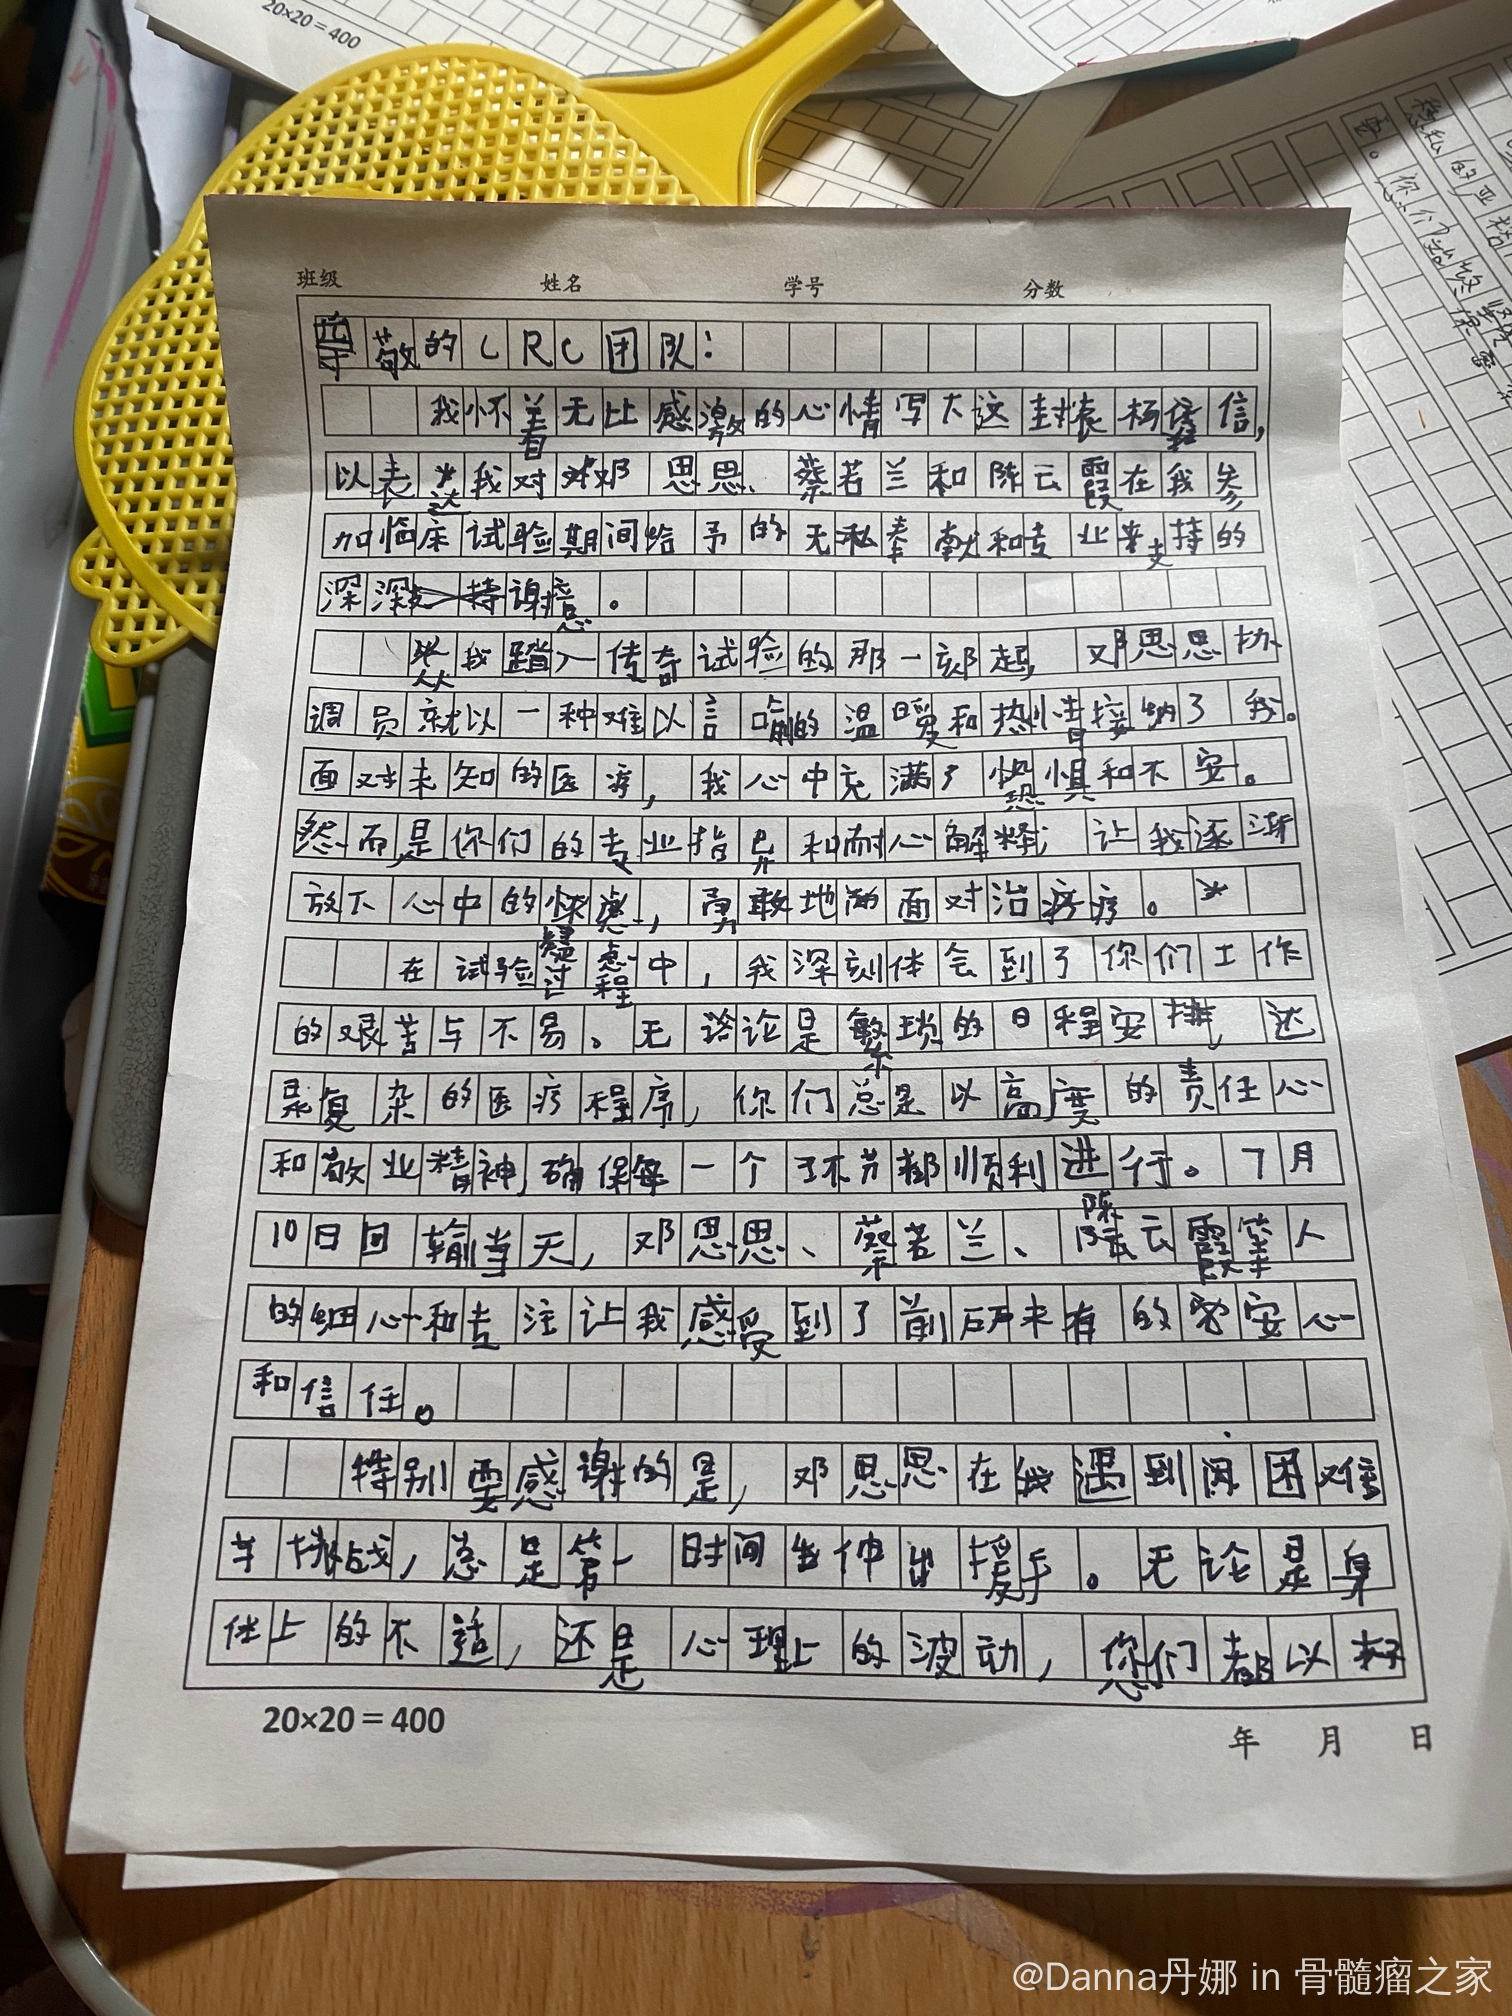 20×20＝400
班级 姓名 学号 分数
尊敬的CRC团队：
我怀着无比感激的心情写下这封表扬信，
以表达我对邓思思、蔡若兰和陈云霞在我参
加临床试验期间给予的无私奉献和专业支持的
深深谢意。
从我踏入传奇试验的那一刻起，邓思思协
调员就以一种难以言喻的温暖和热情接纳了我。
面对未知的医疗，我心中充满了恐惧和不安。
然而，是你们的专业指导和耐心解释，让我逐渐
放下心中的疑虑，勇敢地面对治疗。
在试验过程中，我深刻体会到了你们工作
的艰苦与不易。无论是繁琐的日程安排，还
是复杂的医疗程序，你们总是以高度的责任心
和敬业精神，确保每一个环节都顺利进行。7月
10日回输当天，邓思思、蔡若兰、陈云霞等人
的细心和专注让我感受到了前所未有的安心
和信任。
特别要感谢的是，邓思思在我遇到困难
与挑战，总是第一时间伸出援手。无论是身
体上的不适，还是心理上的波动，您们都以极
20×20＝400
年 月 日
@Danna丹娜 in 骨髓瘤之家